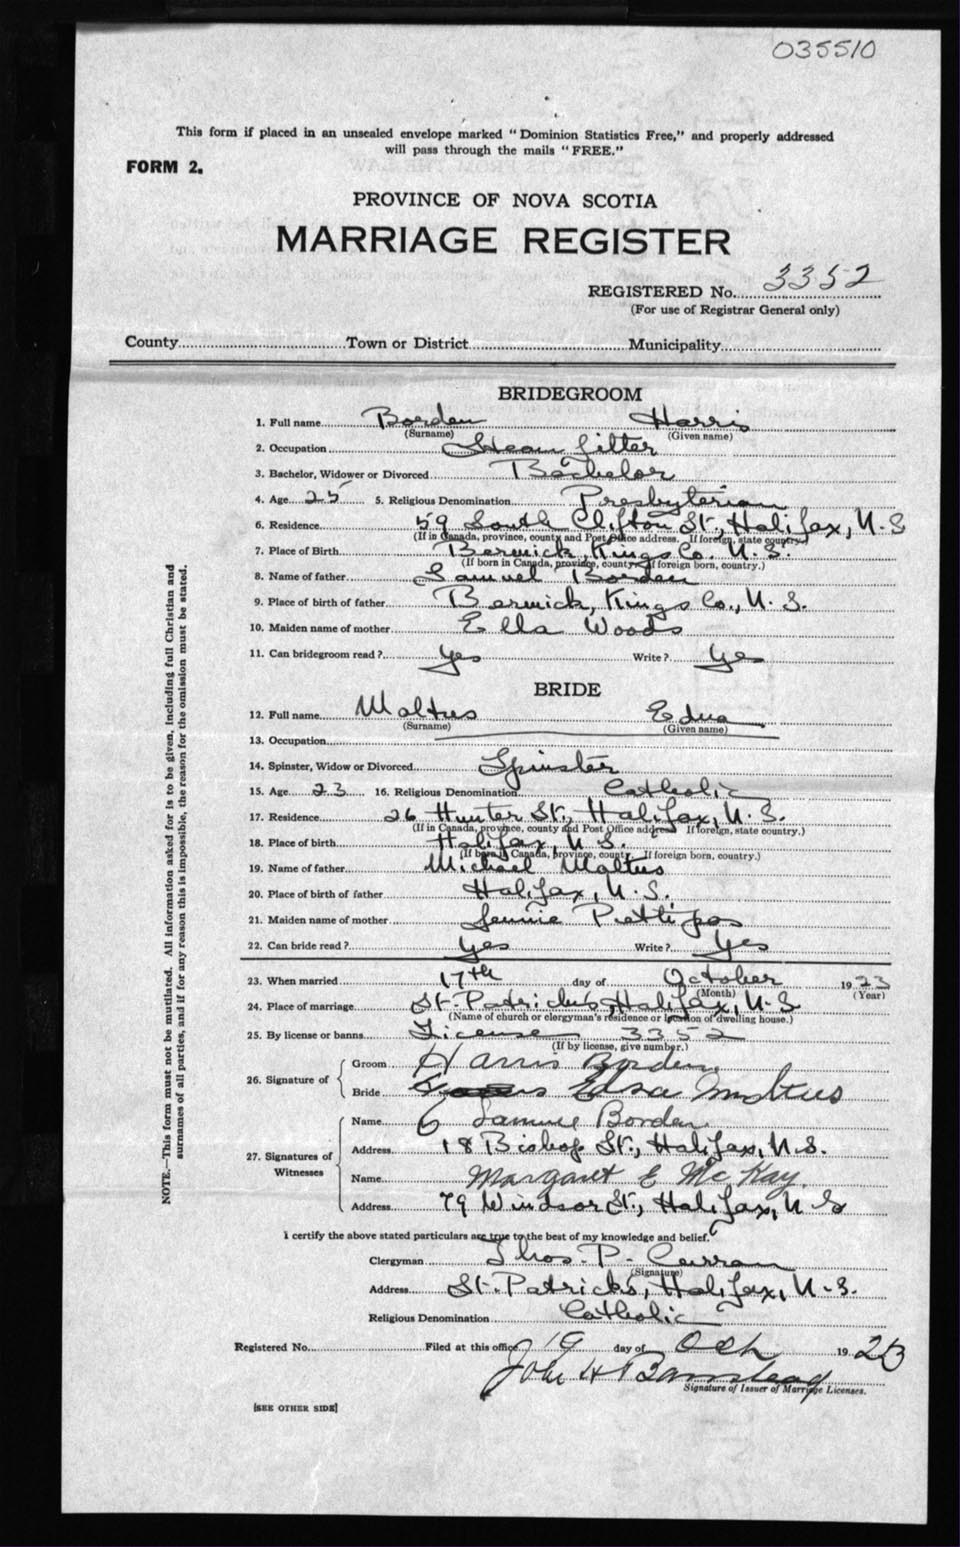 035510
This form if placed in an unsealed envelope marked "Dominion Statistics Free," and properly addressed
will pass through the mails "FREE."
FORM 2.
PROVINCE OF NOVA SCOTIA
MARRIAGE REGISTER
REGISTERED No. 3352
(For use of Registrar General only)
County Town or District Municipality
BRIDEGROOM
1. Full name Borden Harris
(Surname) (Given name)
2. Occupation Steam fitter
3. Bachelor, Widower or Divorced Bachelor
4. Age 25 5. Religious Denomination Presbyterian
6. Residence 59 South Clifton St., Halifax, N.S
(If in Canada, province, county and Post Office address. If foreign, state country.)
7. Place of Birth Berwick, Kings Co. N.S.
(If born in Canada, province, county. If foreign born, country.)
8. Name of father Samuel Borden
9. Place of birth of father Berwick, Kings Co., N.S.
10. Maiden name of mother Ella Woods
11. Can bridegroom read? Yes Write? Yes
BRIDE
12. Full name Moltus Edna
(Surname) (Given name)
13. Occupation
14. Spinster, Widow or Divorced Spinster
15. Age 23 16. Religious Denomination Catholic
17. Residence 26 Hunter St., Halifax, N.S.
(If in Canada, province, county and Post Office address If foreign, state country.)
18. Place of birth Halifax, N.S.
(If born in Canada, province, county. If foreign born, country.)
19. Name of father Michael Moltus
20. Place of birth of father Halifax, N.S.
21. Maiden name of mother Jennie Pettipas
22. Can bride read? Yes Write? Yes
23. When married 17th day of October 1923
(Month) (Year)
24. Place of marriage St. Patrick's, Halifax, N.S
(Name of church or clergyman's residence or location of dwelling house.)
25. By license or banns License 3352
(If by license, give number.)
26. Signature of
Groom Harris Borden
Bride Edna Moltus
27. Signatures of Witnesses
Name Samuel Borden
Address 18 Bishop St., Halifax, N.S.
Name Margaret E McKay.
Address 79 Windsor St., Halifax, N.S
I certify the above stated particulars are true to the best of my knowledge and belief.
Clergyman Thos. P. Curran
(Signature)
Address St. Patrick's, Halifax, N.S.
Religious Denomination Catholic
Registered No. Filed at this office 19 day of Oct 1923
John H Barnstead
Signature of Issuer of Marriage Licenses.
[SEE OTHER SIDE]
NOTE.—This form must not be mutilated. All information asked for is to be given, including full Christian and
surnames of all parties, and if for any reason this is impossible, the reason for the omission must be stated.